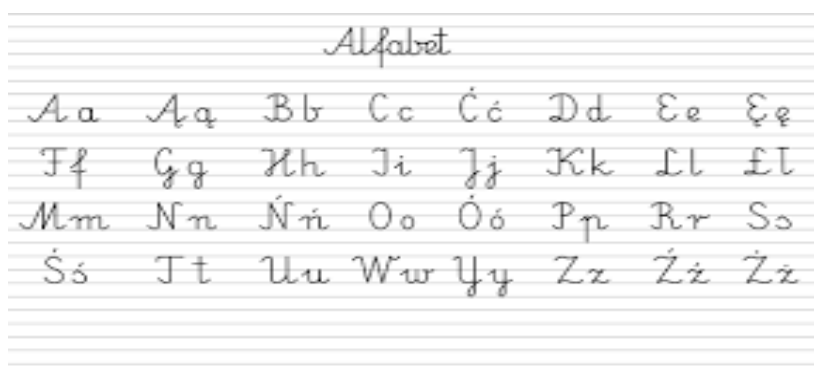 Alfabet
A a Ą ą B b C c Ć ć D d E e Ę ę
F f G g H h I i J j K k L l Ł ł
M m N n Ń ń O o Ó ó P p R r S s
Ś ś T t U u W w Y y Z z Ź ź Ż ż